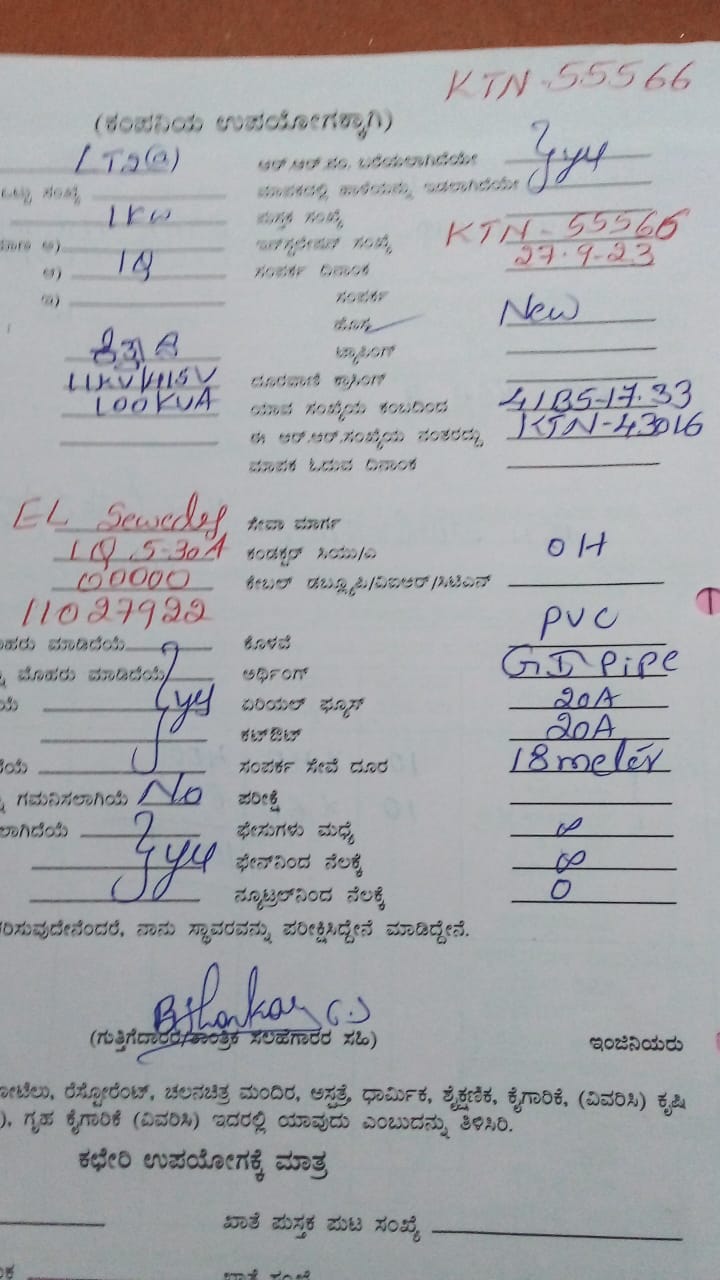 KTN-55566
(ಕಂಪನಿಯ ಉಪಯೋಗಕ್ಕಾಗಿ)
LT2(a) ಆರ್.ಆರ್.ನಂ. ಬರೆಯಲಾಗಿದೆಯೇ
ಸಂಖ್ಯೆ
1KW ಪುಸ್ತಕ ಸಂಖ್ಯೆ
ಅ) ಇನ್‌ಸ್ಟಲೇಷನ್ ಸಂಖ್ಯೆ KTN-55566
ಆ) ಸಂಪರ್ಕ ದಿನಾಂಕ 27.9.23
ಇ) ಸಂಪರ್ಕ
ಹೊಸ New
ಟ್ಯಾಪಿಂಗ್
11KV/415V ದೂರವಾಣಿ ಕ್ರಾಸಿಂಗ್
100KVA ಯಾವ ಸಂಖ್ಯೆಯ ಕಂಬದಿಂದ
ಈ ಆರ್.ಆರ್.ಸಂಖ್ಯೆಯ ನಂತರದ್ದು KTN-43016
ಮಾಪಕ ಓದುವ ದಿನಾಂಕ
EL Sewedey ಸೇವಾ ಮಾರ್ಗ
5-30A ಕಂಡಕ್ಟರ್ ಸಿಯು/ಎ OH
00000 ಕೇಬಲ್ ಡಬ್ಲ್ಯೂಪಿ/ವಿಐಆರ್/ಸಿಟಿಎಸ್
11027922
ಮಾಡಿದೆಯೆ ಕೊಳವೆ PVC
ಮೊಹರು ಮಾಡಿದೆಯೆ ಅರ್ಥಿಂಗ್ GI Pipe
ಏರಿಯಲ್ ಫ್ಯೂಸ್ 20A
ಕಟ್‌ಔಟ್ 20A
ಸಂಪರ್ಕ ಸೇವೆ ದೂರ 18meter
ಗಮನಿಸಲಾಗಿಯೆ No ಪರೀಕ್ಷೆ
ಲಾಗಿದೆಯೆ ಫೇಸುಗಳು ಮಧ್ಯೆ ∞
ಫೇಸ್‌ನಿಂದ ನೆಲಕ್ಕೆ ∞
ನ್ಯೂಟ್ರಲ್‌ನಿಂದ ನೆಲಕ್ಕೆ 0
ರಿಸುವುದೇನೆಂದರೆ, ನಾನು ಸ್ಥಾವರವನ್ನು ಪರೀಕ್ಷಿಸಿದ್ದೇನೆ ಮಾಡಿದ್ದೇನೆ.
(ಗುತ್ತಿಗೆದಾರರ/ತಾಂತ್ರಿಕ ಸಲಹೆಗಾರರ ಸಹಿ) ಇಂಜಿನಿಯರು
ೋಟೆಲು, ರೆಸ್ಟೋರೆಂಟ್, ಚಲನಚಿತ್ರ ಮಂದಿರ, ಆಸ್ಪತ್ರೆ, ಧಾರ್ಮಿಕ, ಶೈಕ್ಷಣಿಕ, ಕೈಗಾರಿಕೆ, (ವಿವರಿಸಿ) ಕೃಷಿ
), ಗೃಹ ಕೈಗಾರಿಕೆ (ವಿವರಿಸಿ) ಇದರಲ್ಲಿ ಯಾವುದು ಎಂಬುದನ್ನು ತಿಳಿಸಿರಿ.
ಕಛೇರಿ ಉಪಯೋಗಕ್ಕೆ ಮಾತ್ರ
ಖಾತೆ ಪುಸ್ತಕ ಪುಟ ಸಂಖ್ಯೆ